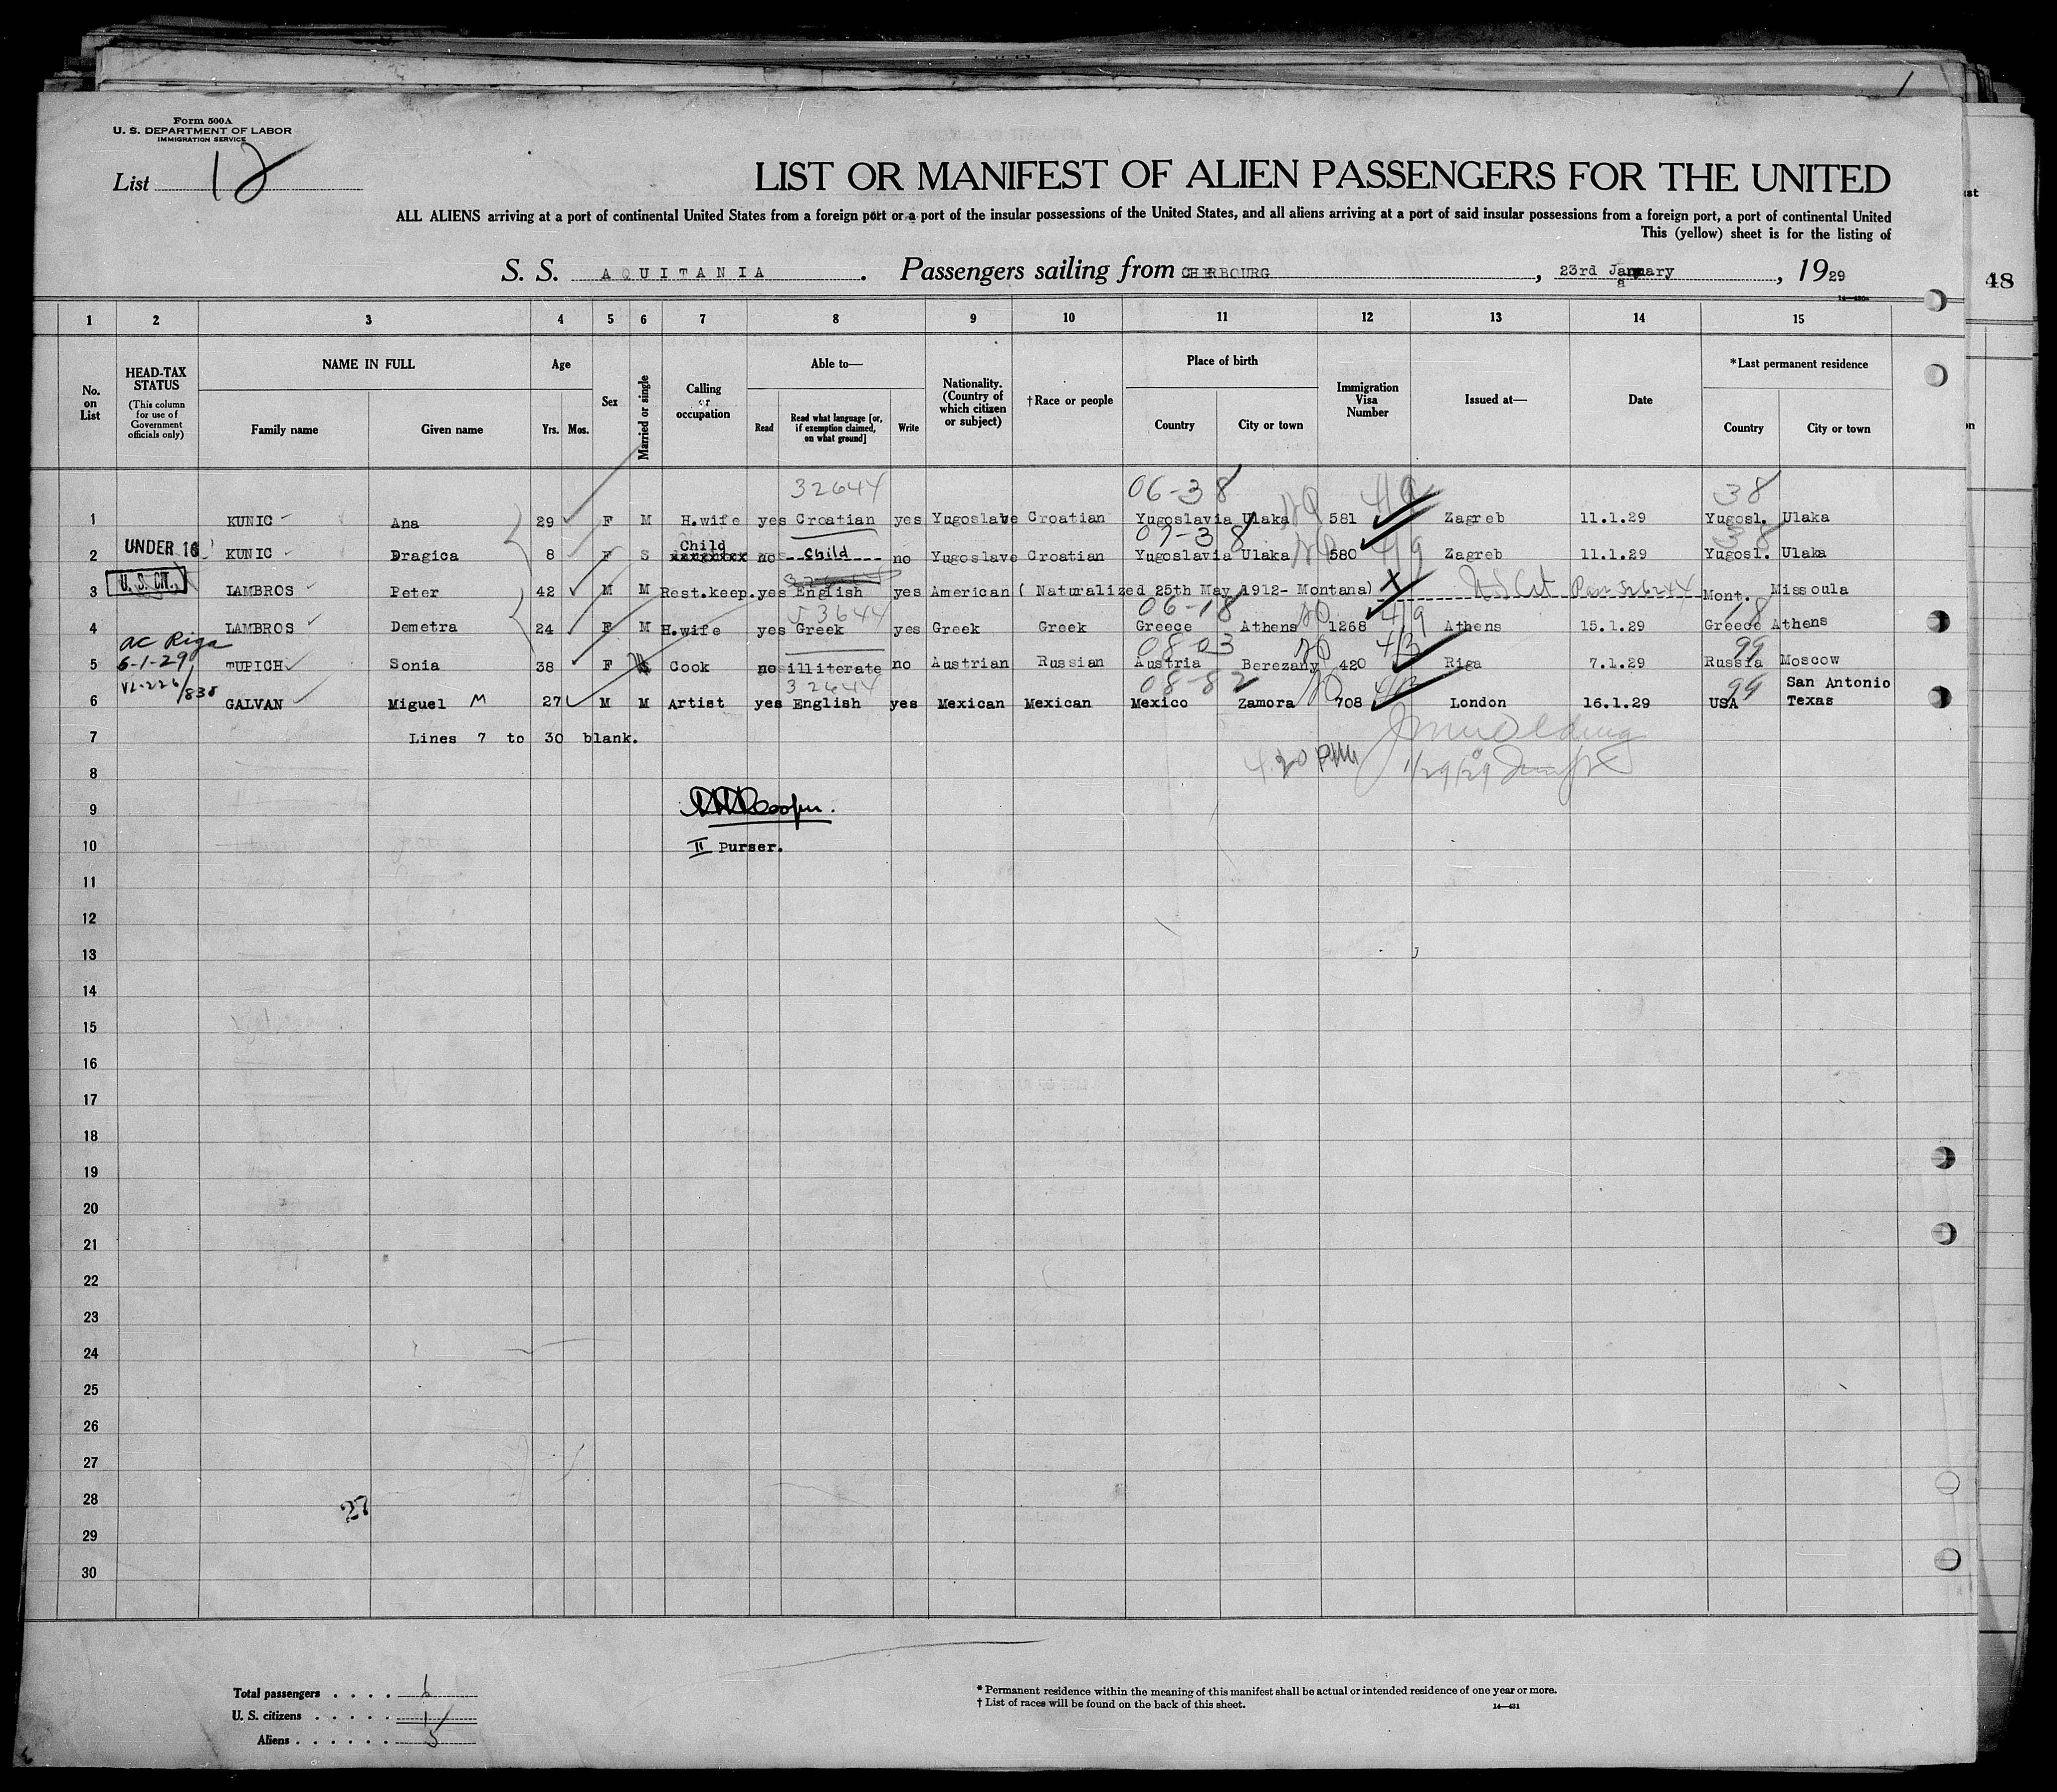 Form 500A
U. S. DEPARTMENT OF LABOR
IMMIGRATION SERVICE
List 12
LIST OR MANIFEST OF ALIEN PASSENGERS FOR THE UNITED
ALL ALIENS arriving at a port of continental United States from a foreign port or a port of the insular possessions of the United States, and all aliens arriving at a port of said insular possessions from a foreign port, a port of continental United
This (yellow) sheet is for the listing of
S. S. AQUITANIA. Passengers sailing from CHERBOURG, 23rd January, 1929
48
1 2 3 4 5 6 7 8 9 10 11 12 13 14 15
No. on List
HEAD-TAX STATUS
(This column for use of Government officials only)
NAME IN FULL
Family name
Given name
Age
Yrs. Mos.
Sex
Married or single
Calling or occupation
Able to—
Read
Read what language [or, if exemption claimed, on what ground]
Write
Nationality. (Country of which citizen or subject)
†Race or people
Place of birth
Country
City or town
Immigration Visa Number
Issued at—
Date
*Last permanent residence
Country
City or town
32644 06-38 4/9 38
1 KUNIC Ana 29 F M H.wife yes Croatian yes Yugoslave Croatian Yugoslavia Ulaka 581 Zagreb 11.1.29 Yugosl. Ulaka
07-38 4/9 38
2 UNDER 16 KUNIC Dragica 8 F S Child no Child no Yugoslave Croatian Yugoslavia Ulaka 580 Zagreb 11.1.29 Yugosl. Ulaka
3 U. S. CIT. LAMBROS Peter 42 M M Rest.keep. yes English yes American ( Naturalized 25th May 1912- Montana) US Cit Mont. Missoula
53644 06-18 4/9 18
4 LAMBROS Demetra 24 F M H.wife yes Greek yes Greek Greek Greece Athens 1268 Athens 15.1.29 Greece Athens
ac Riga
08-03 4/3 99
5 6-1-29 TUPICH Sonia 38 F Cook no illiterate no Austrian Russian Austria Berezany 420 Riga 7.1.29 Russia Moscow
VL-226/838
32644 08-82 99 San Antonio
6 GALVAN Miguel M 27 M M Artist yes English yes Mexican Mexican Mexico Zamora 708 London 16.1.29 USA Texas
7 Lines 7 to 30 blank.
4.20 PM 1/29/29
8
9
10 II Purser.
11
12
13
14
15
16
17
18
19
20
21
22
23
24
25
26
27
28 27
29
30
Total passengers . . . . 6
U. S. citizens . . . . . 1
Aliens . . . . . . 5
* Permanent residence within the meaning of this manifest shall be actual or intended residence of one year or more.
† List of races will be found on the back of this sheet.
14—431